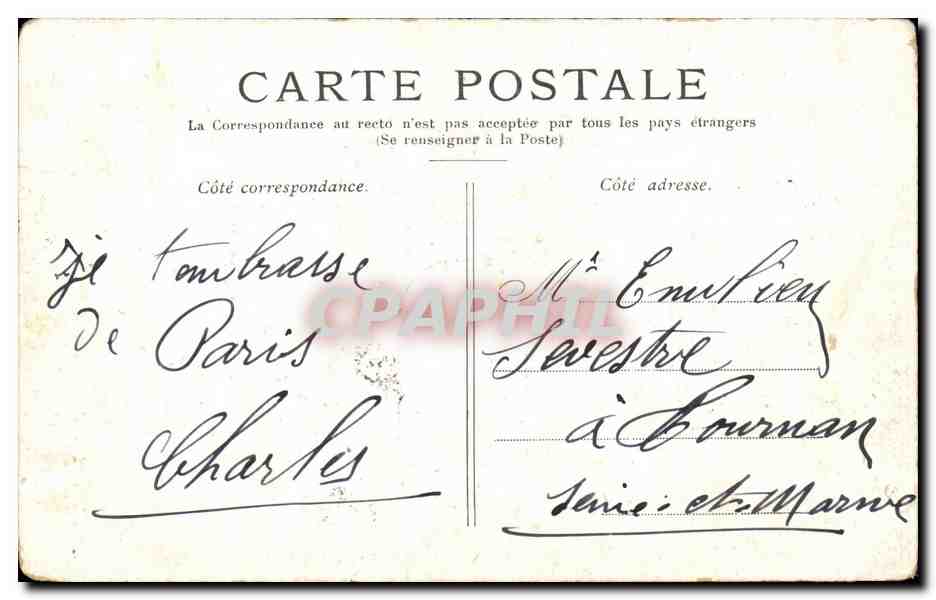 CARTE POSTALE
La Correspondance au recto n'est pas acceptée par tous les pays étrangers
(Se renseigner à la Poste)
Côté correspondance.
je t'embrasse
de Paris
Charles
Côté adresse.
Mr Emilien
Sevestre
à Tournan
Seine-et-Marne
CPAPHIL